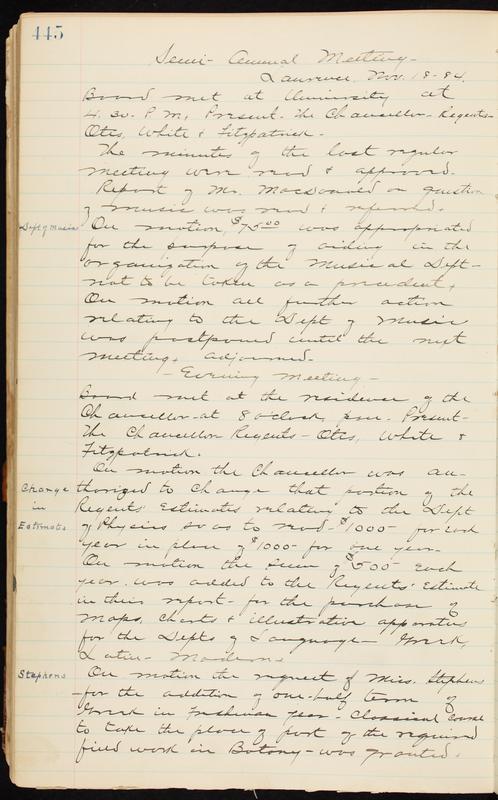 445
Semi-Annual Meeting-
Lawrence, Nov. 18-84.
Board met at University at
4.30. P.M. Present. The Chancellor- Regents-
Otis, White & Fitzpatrick-
The minutes of the last regular
meeting were read & approved.
Report of Mr. Macdonald on question
of music was read & referred.
Dept of Music
On motion, $75.00 was appropriated
for the purpose of aiding in the
organization of the Musical Dept-
not to be taken as a precedent.
On motion all further action
relating to the Dept of Music
was postponed until the next
meeting. Adjourned-
- Evening Meeting -
Board met at the residence of the
Chancellor at 8 oclock, Present-
The Chancellor Regents- Otis, White &
Fitzpatrick.
On motion the Chancellor was au-
Change
in
Estimates
thorized to change that portion of the
Regents' Estimates relating to the Dept
of Physics so as to read- $1000- for each
year in place of $1000- for one year-
On motion the sum of $500- each
year was added to the Regents' Estimate
in their report- for the purchase of
maps, charts & illustrative apparatus
for the Depts of Language- Greek,
Latin- Modern-
Stephens
On motion the request of Miss. Stephens
-for the addition of one-half term of
Greek in Freshman year- Classical Course
to take the place of part of the required
field work in Botany- was granted.